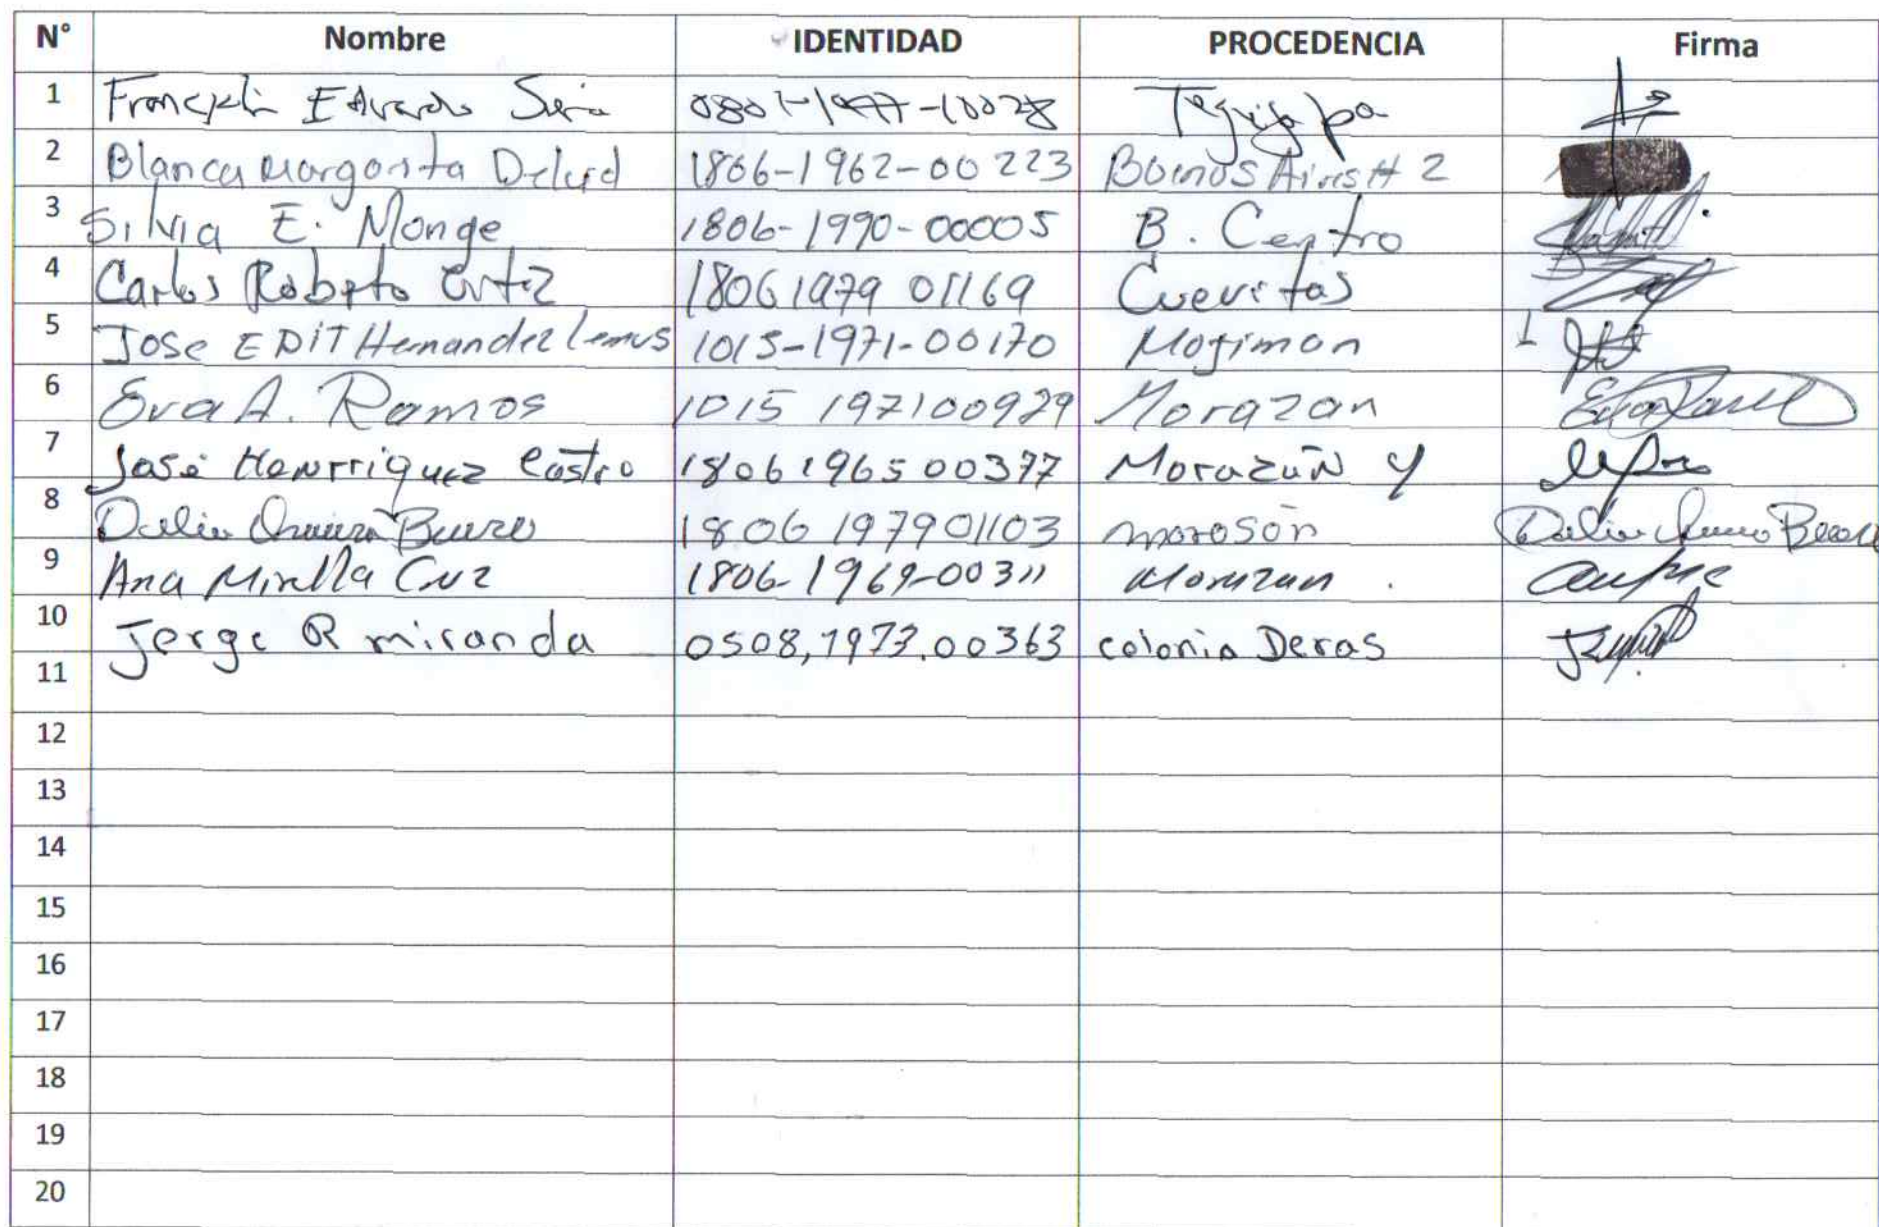 N° Nombre IDENTIDAD PROCEDENCIA Firma
1 Eduardo
2 Blanca Margorita 1806-1962-00223 Buenos Aires # 2
3 Silvia E. Monge 1806-1990-00005 B. Centro
4 Carlos Robeto Ortiz 1806 1979 01169 Cuevitas
5 Jose EDIT Hernandez Lemus 1015-1971-00170 Mojiman
6 Eva A. Ramos 1015 197100929 Morazan
7 José Henrriquez Castro 1806 1965 00377 Morazán y
8 Dalia 1806 197901103 morosón Dalia
9 Ana Mirella Cruz 1806-1969-00311 Morazan .
10 Jorge R miranda 0508,1973.00363 colonia Deras
11
12
13
14
15
16
17
18
19
20